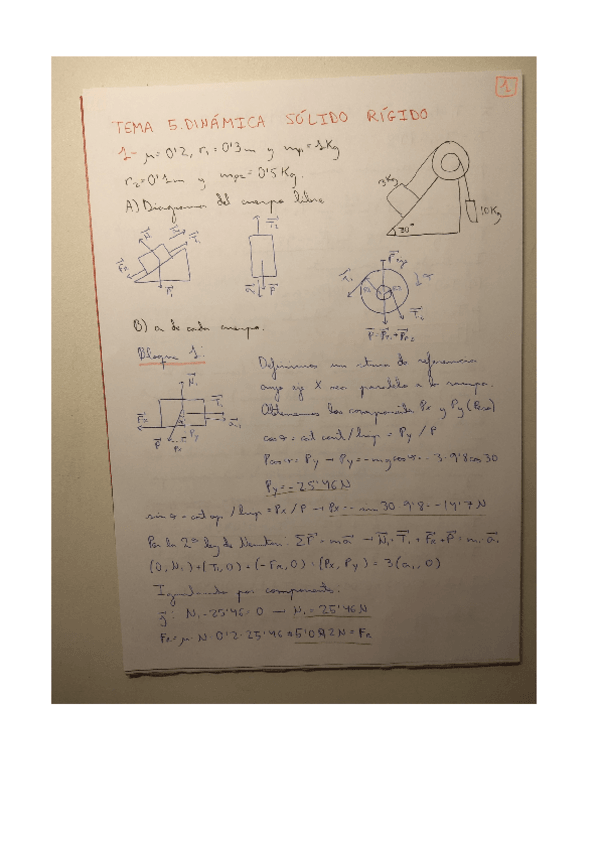 1
TEMA 5. DINÁMICA SÓLIDO RÍGIDO
1- μ = 0'2, r₁ = 0'3m y mp₁ = 1Kg
r₂ = 0'1m y mp₂ = 0'5Kg.
3Kg
10Kg
30°
A) Diagrama del cuerpo libre
B) a de cada cuerpo.
Bloque 1:
Definimos un sistema de referencia
cuyo eje X sea paralelo a la rampa.
Obtenemos las componentes Px y Py (Peso)
cos α = cat cont/hip = Py / P
P cos α = Py → Py = -mg cos α = -3·9'8 cos 30
Py = -25'46N
sin α = cat op. / hip = Px / P → Px = - sin 30 · 9'8 = -14'7N
Por la 2ª ley de Newton: ΣF = ma → N₁ + T₁ + FR + P = m₁ · a₁
(0, N₁) + (T₁, 0) + (-FR, 0) + (Px, Py) = 3(a₁, 0)
Igualando por componentes:
j: N₁ - 25'46 = 0 → N₁ = 25'46N
FR = μ · N = 0'2 · 25'46 = 5'092N = FR